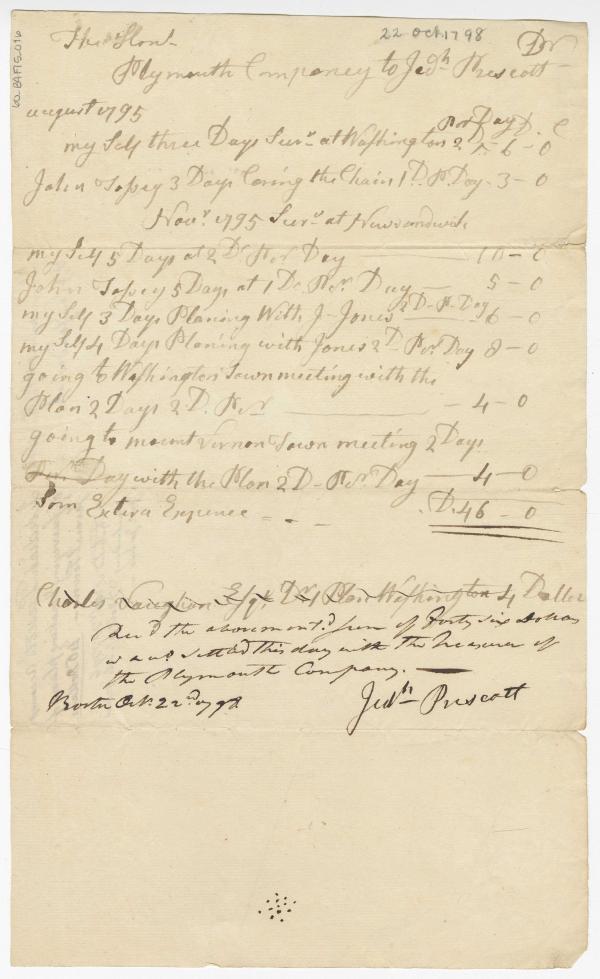 60.BAFIG.016
22 Oct 1798
The Honl. Dr
Plymouth Companey to Jedh. Prescott
august 1795
Per Day D. C
my Self three Days Survr. at Washington 2 D. 6-0
John Tobey 3 Days Caring the Chain 1 D. Pr. Day- 3-0
Novr. 1795 Survr. at Newsandwich
my Self 5 Days at 2 D. Per Day 10-0
John Tobey 5 Days at 1 D. Per. Day - 5-0
my Self 3 Days Planing With J- Jones 2 D- Pr. Day - 6-0
my Self 4 Days Planing with Jones 2 D- Per. Day 8-0
going to Washington Town meeting with the
Plan 2 Days 2 D. Per. - 4-0
going to mount Vernon Town meeting 2 Days
Day with the Plan 2 D- Per. Day - 4-0
Som Extera Expence - - - D. 46-0
Charles Vaughan Esqr. Dr. 1 Plan Washington 4 Doller
Recd. the abovementd. sum of Forty six dollars
was settled this day with the Treasurer of
the Plymouth Company.
Boston Oct. 22nd. 1798 Jedh. Prescott